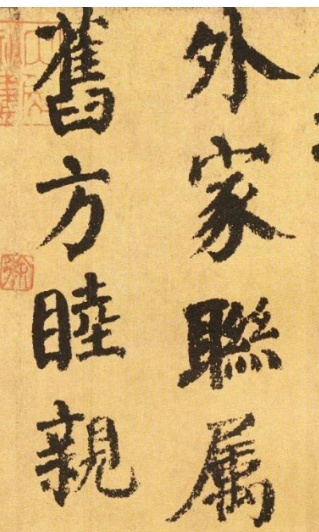 外家聯属
舊方睦親